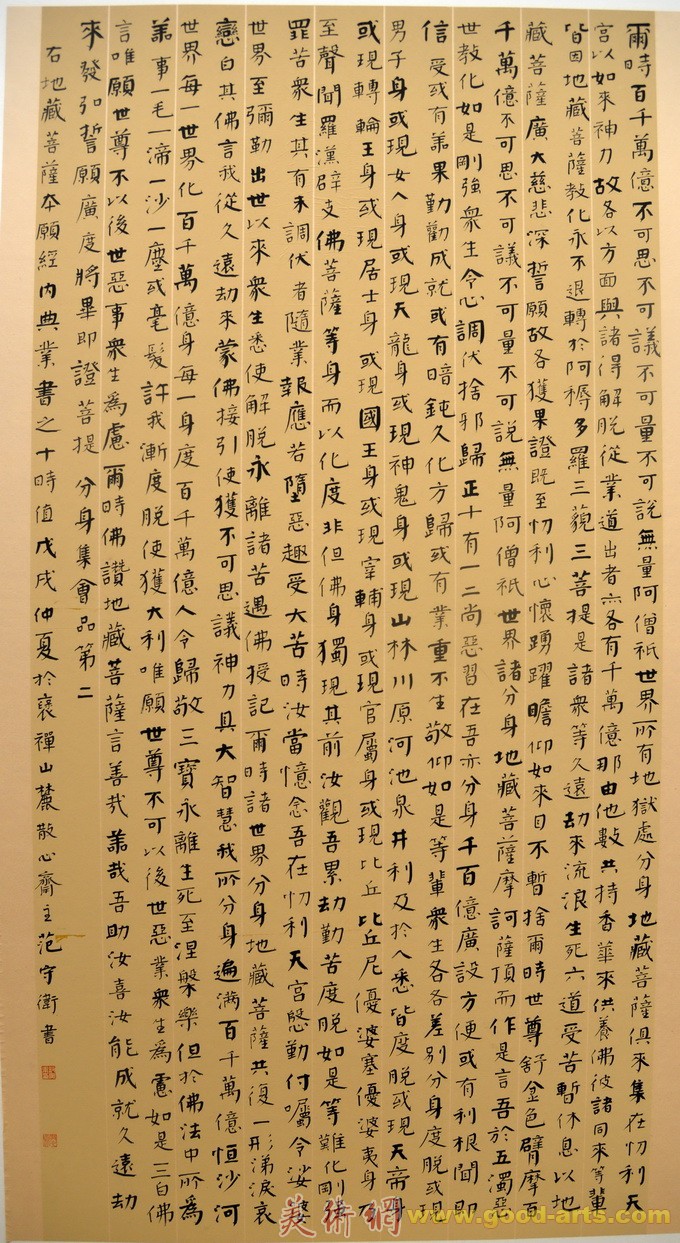 爾時百千萬億不可思不可議不可量不可說無量阿僧祇世界所有地獄處分身地藏菩薩俱來集在忉利天
宮以如來神力故各以方面與諸得解脫從業道出者亦各有千萬億那由他數共持香華來供養佛彼諸同來等輩
皆因地藏菩薩教化永不退轉於阿耨多羅三藐三菩提是諸眾等久遠劫來流浪生死六道受苦暫休息以地
藏菩薩廣大慈悲深誓願故各獲果證既至忉利心懷踴躍瞻仰如來目不暫捨爾時世尊舒金色臂摩百
千萬億不可思不可議不可量不可說無量阿僧祇世界諸分身地藏菩薩摩訶薩頂而作是言吾於五濁惡
世教化如是剛強眾生令心調伏捨邪歸正十有一二尚惡習在吾亦分身千百億廣設方便或有利根聞即
信受或有善果勤勸成就或有暗鈍久化方歸或有業重不生敬仰如是等輩眾生各各差別分身度脫或現
男子身或現女人身或現天龍身或現神鬼身或現山林川原河池泉井利及於人悉皆度脫或現天帝身
或現轉輪王身或現居士身或現國王身或現宰輔身或現官屬身或現比丘比丘尼優婆塞優婆夷身乃
至聲聞羅漢辟支佛菩薩等身而以化度非但佛身獨現其前汝觀吾累劫勤苦度脫如是等難化剛強
罪苦眾生其有未調伏者隨業報應若墮惡趣受大苦時汝當憶念吾在忉利天宮慇勤付囑令娑婆
世界至彌勒出世以來眾生悉使解脫永離諸苦遇佛授記爾時諸世界分身地藏菩薩共復一形涕淚哀
戀白其佛言我從久遠劫來蒙佛接引使獲不可思議神力具大智慧我所分身遍滿百千萬億恒沙河
世界每一世界化百千萬億身每一身度百千萬億人令歸敬三寶永離生死至涅槃樂但於佛法中所為
善事一毛一渧一沙一塵或毫髮許我漸度脫使獲大利唯願世尊不可以後世惡業眾生為慮如是三白佛
言唯願世尊不以後世惡事眾生為慮爾時佛讚地藏菩薩言善哉善哉吾助汝喜汝能成就久遠劫
來發弘誓願廣度將畢即證菩提 分身集會品第二
右地藏菩薩本願經內典業書之十時值戊戌仲夏於褒禪山麓散心齋主范守衛書
美術網
www.good-arts.com